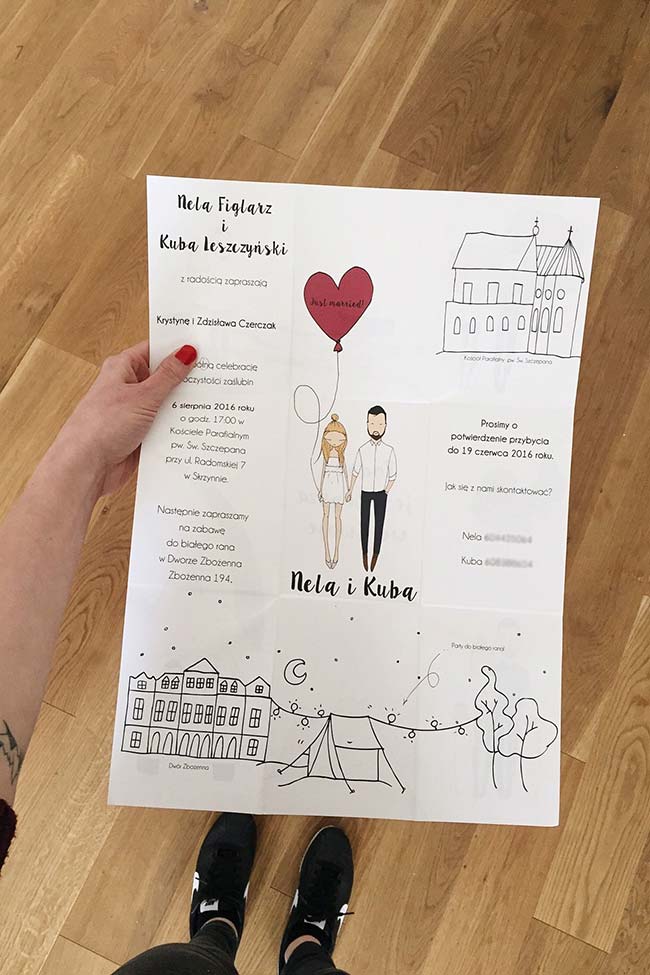 Nela Figlarz
i
Kuba Leszczyński
z radością zapraszają
Krystynę i Zdzisława Czerczak
celebrację
zaślubin
6 sierpnia 2016 roku
o godz. 17:00 w
Kościele Parafialnym
pw. Św. Szczepana
przy ul. Radomskiej 7
w Skrzynnie.
Następnie zapraszamy
na zabawę
do białego rana
w Dworze Zbożenna
Zbożenna 194.
Just married!
Nela i Kuba
Kościół Parafialny pw. Św. Szczepana
Prosimy o
potwierdzenie przybycia
do 19 czerwca 2016 roku.
Jak się z nami skontaktować?
Nela
Kuba
Party do białego rana!
Dwór Zbożenna